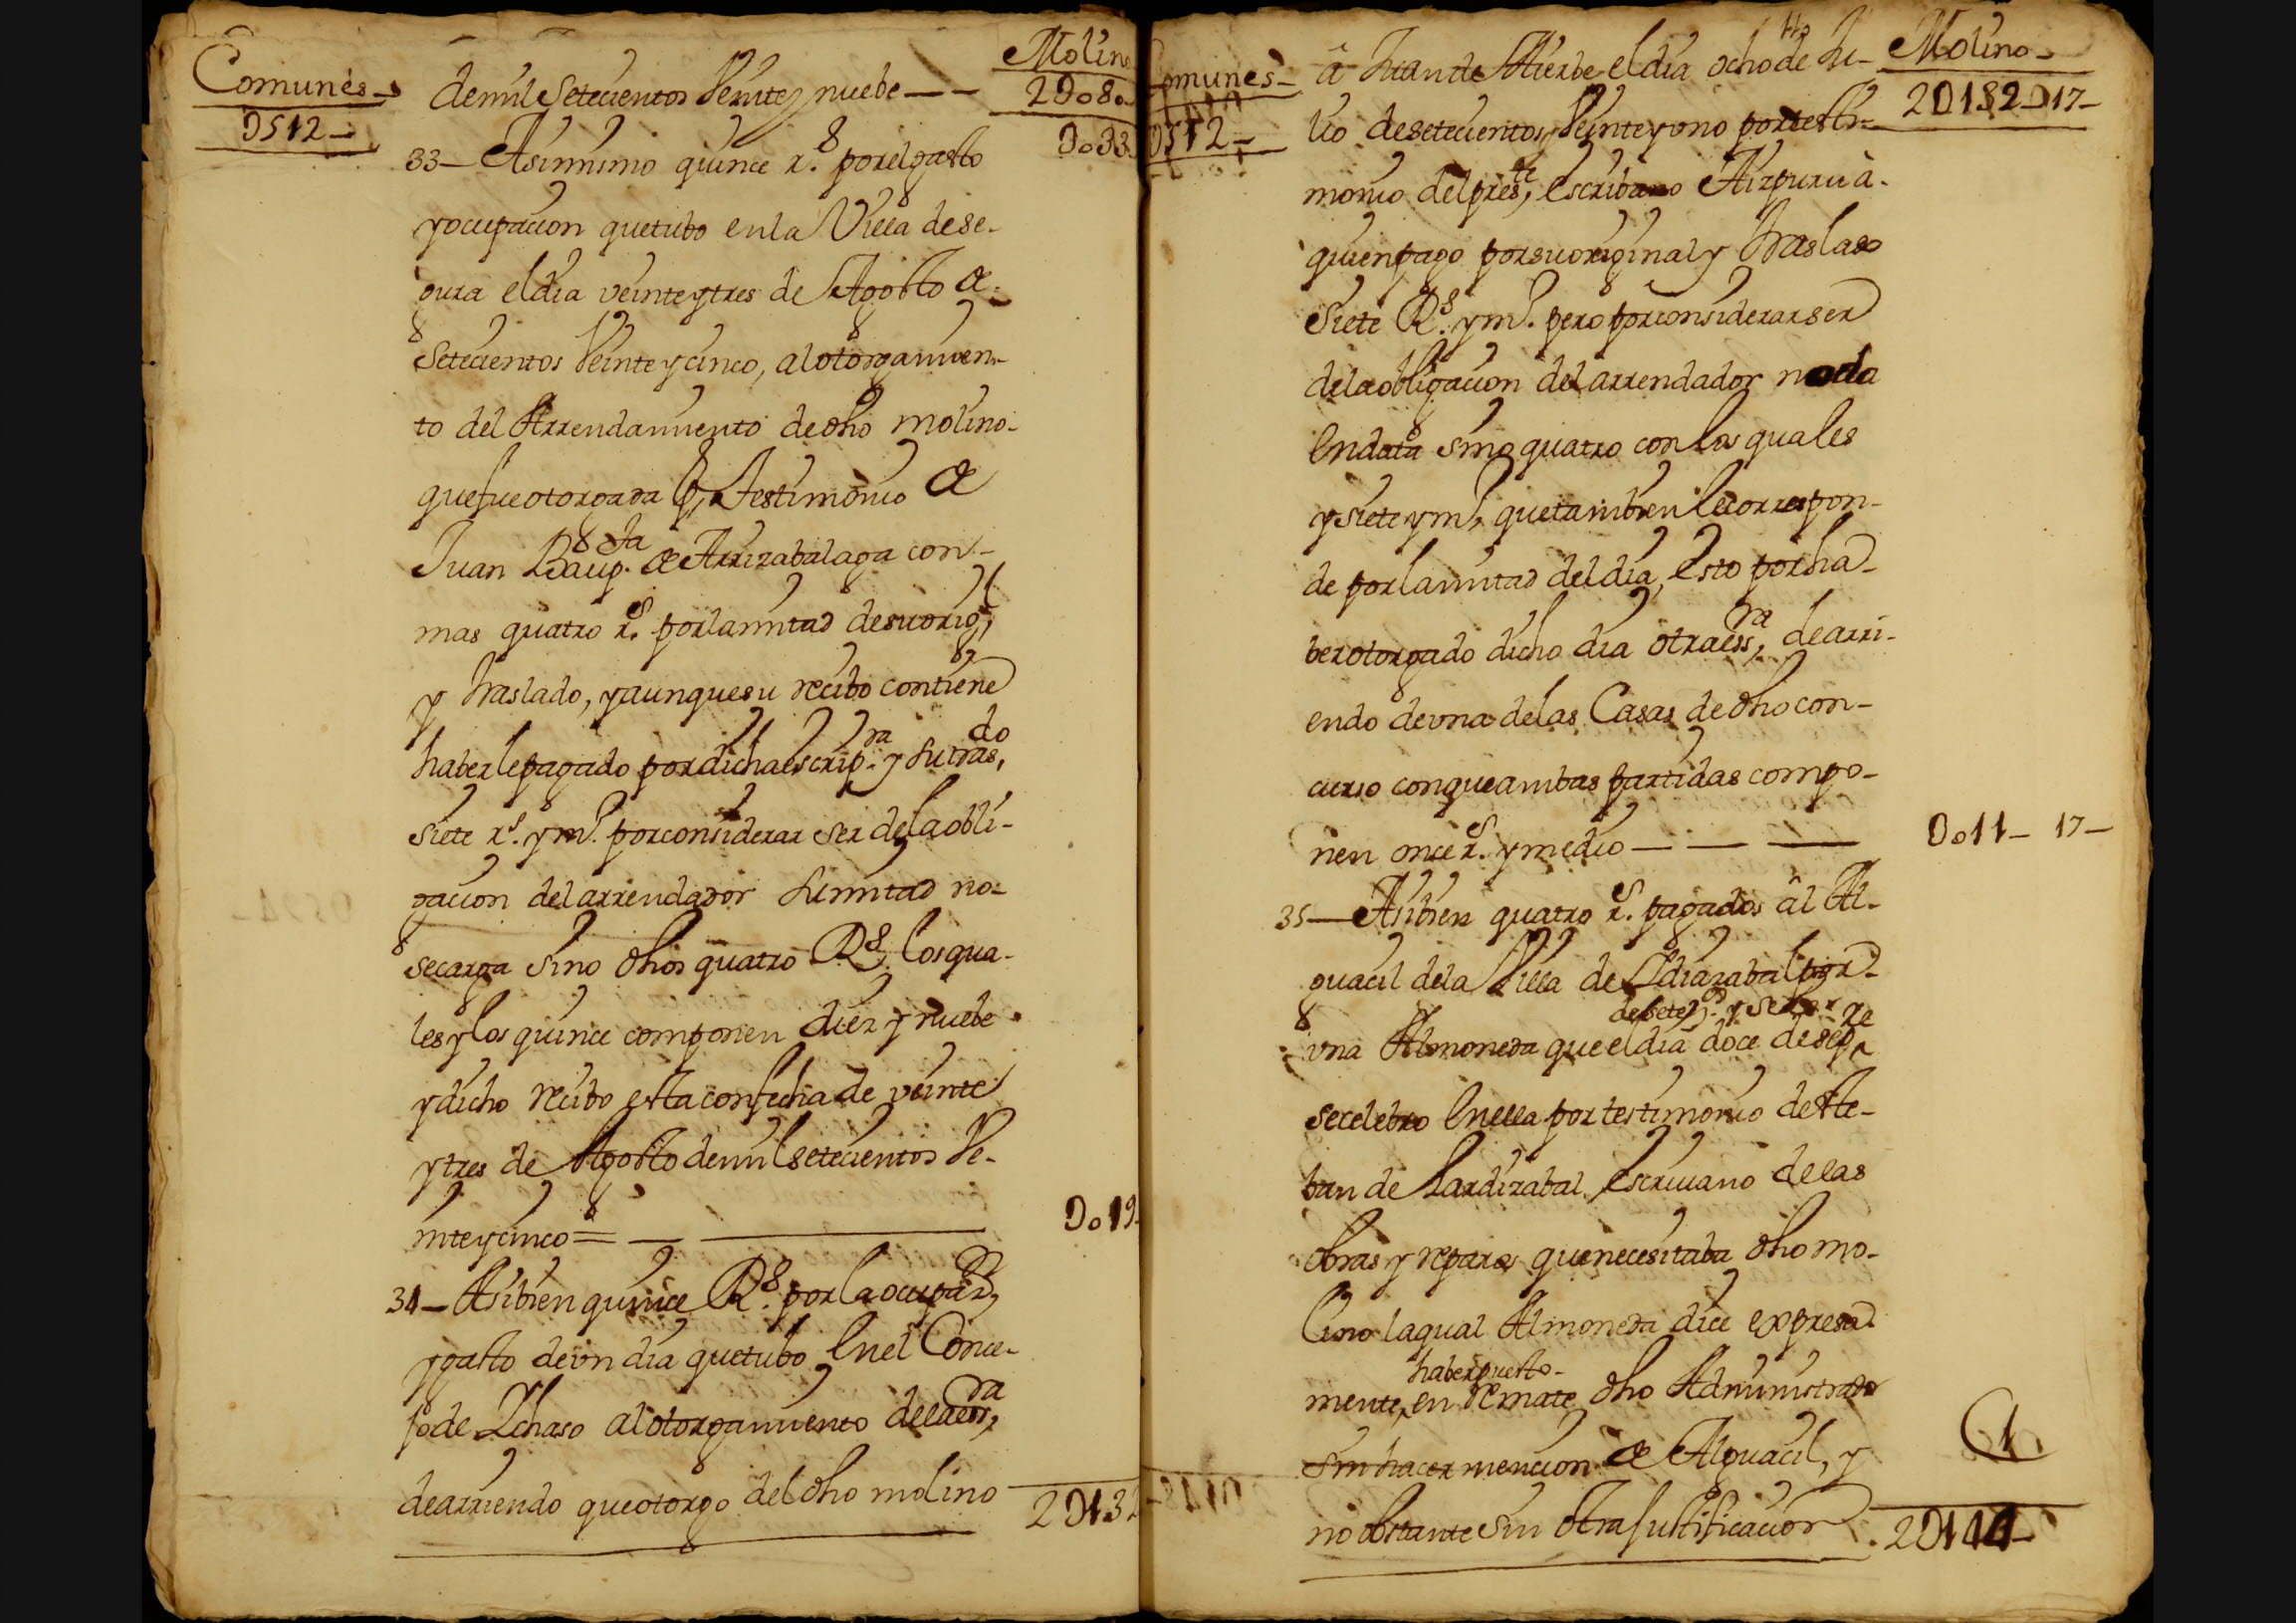 Comunes
D512
Molin
2D080
de mil setecientos Veinte y nuebe
Do33
33 Asimismo quince r.s por el gasto
y ocupacion que tubo en la Villa de Se-
gura el dia veinte y tres de Agosto de
Setecientos Veinte y cinco, al otorgamien-
to del Arrendamiento de dho molino
que fue otorgada p.r testimonio de
Juan Baup.ta de Arrizabalaga con
mas quatro r.s por la mitad de su orig.l
y traslado, y aunque su recibo contiene
haberle pagado por dicha escrip.ra y su tras.do
siete r.s y m.o por considerar ser de la obli-
gacion del arrendador su mitad no
se carga sino dhos quatro R.s los qua-
les y los quince componen diez y nuebe
y dicho recibo esta con fecha de veinte
y tres de Agosto de mil setecientos Ve-
inte y cinco =
Do19
34 Asibien quince R.s por la ocupaz.on
y gasto de un dia que tubo en el Conce-
jo de Ichaso al otorgamiento de la ess.ra
de arriendo que otorgo del dho molino
2D132
Comunes
D512
Molino
2D132 D17
â Juan de Iturbe el dia ocho de Ju-
lio de setecientos y Veinte y uno por testi-
monio del pres.te escribano Aizpurua
quien pago por su original y traslado
siete R.s y m.o pero por considerar ser
de la obligacion del arrendador no da
en data sino quatro con los quales
y siete y m.o que tambien le correspon-
de por la mitad del dia, esto por ha-
ber otorgado dicho dia otra ess.ra de arri-
endo de una de las Casas de dho con-
curso con que ambas partidas compo-
nen once r.s y medio
Do11 17
35 Asibien quatro r.s pagados âl Al-
guacil de la Villa de Idiazabal por
una Almoneda que el dia doce de sep.re
se celebro en ella por testimonio de Ste-
ban de Lardizabal escriuano de las
obras y reparos que necesitaba dho mo-
lino la qual Almoneda dice expresa
haber puesto
mente, en remate dho Administrador
sin hacer mencion de Alguacil, y
no obstante sin otra justificacion
2D144